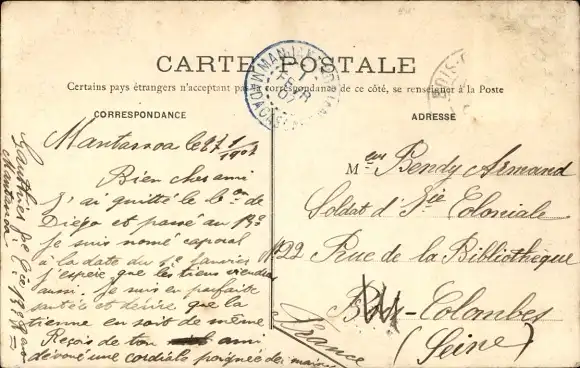 CARTE POSTALE
Certains pays étrangers n'acceptant pas la correspondance de ce côté, se renseigner à la Poste
CORRESPONDANCE
Mantasoa le 27 1/1907
Bien cher ami
J'ai quitté le b.on de
Diego et passé au 13e
je suis nommé caporal
à la date du 1er janvier
j'espère que les tiens viendront
aussi. Je suis en parfaite
santée et désire que la
tienne en soit de même
Reçois de ton ami
dévoué une cordiale poignée de mains
Gauthier
Mantasoa
ADRESSE
Bendy Armand
Soldat d'Inf.ie Coloniale
No 22 Rue de la Bibliothèque
Bois-Colombes
(Seine)
France
1
FEVR
07
MADAGASCAR
BOIS-C